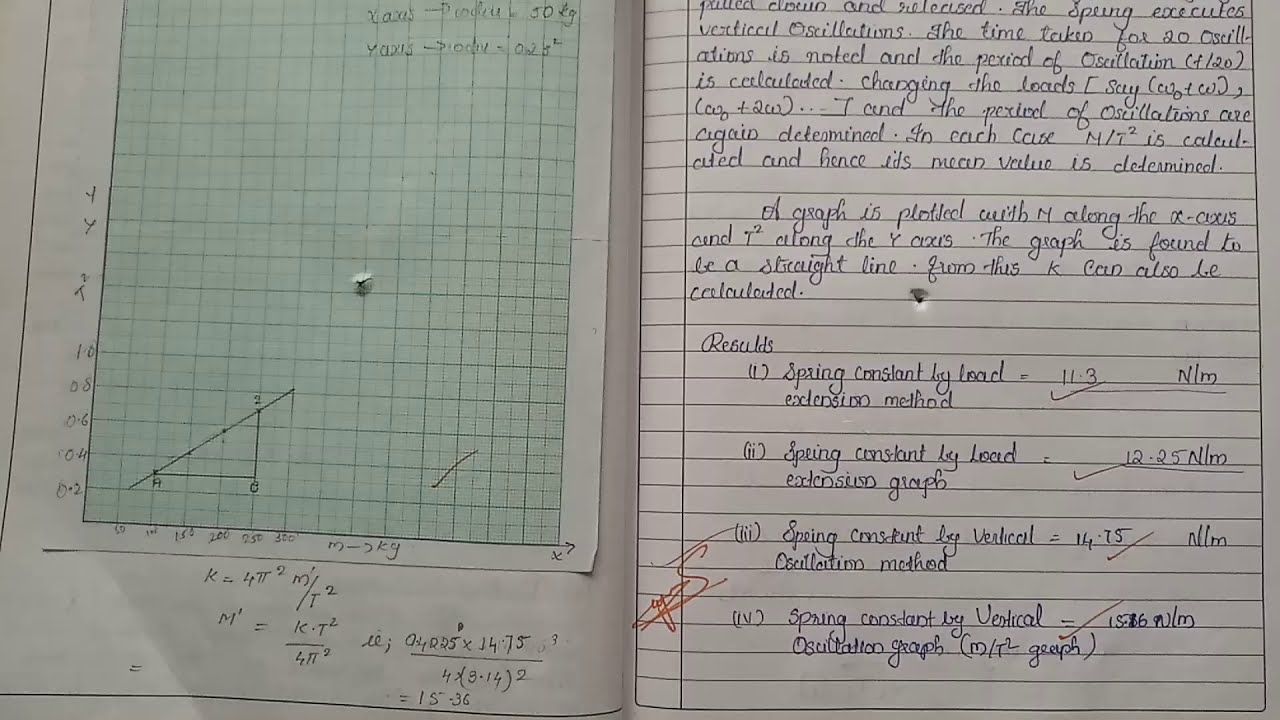 x axis → 1 = 50 kg
Y axis → = 0.2 s²
Y
Y
T²
1.0
0.8
0.6
0.4
0.2
A
B
50 100 150 200 250 300
m → kg
x
K = 4π² m'/T²
M' = K·T²/4π² ie; 04225 x 14.75 / 4x(3.14)2
=
= 15.36
pulled down and released. The Spring executes
vertical Oscillations. The time taken for 20 Oscill-
ations is noted and the period of Oscillation (t/20)
is calculated. changing the loads [say (ω₀+ω),
(ω₀ + 2ω)...] and the period of Oscillations are
again determined. In each case M/T² is calcul-
ated and hence its mean value is determined.
A graph is plotted with M along the x-axis
and T² along the Y axis. The graph is found to
be a straight line. from this K can also be
calculated.
Results
(i) Spring constant by load = 11.3 N/m
extension method
(ii) Spring constant by Load = 12.25 N/m
extension graph
(iii) Spring constant by Vertical = 14.75 N/m
Oscillation method
(iv) Spring constant by Vertical = N/m
Oscillation graph (m/T² graph)